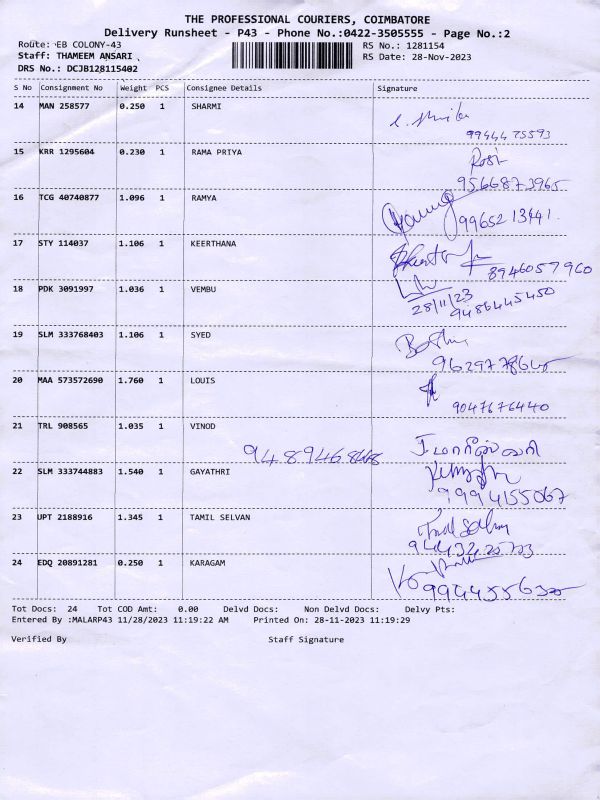 THE PROFESSIONAL COURIERS, COIMBATORE
Delivery Runsheet - P43 - Phone No.:0422-3505555 - Page No.:2
Route: EB COLONY-43 RS No.: 1281154
Staff: THAMEEM ANSARI RS Date: 28-Nov-2023
DRS No.: DCJB128115402
S No Consignment No Weight PCS Consignee Details Signature
14 MAN 258577 0.250 1 SHARMI
15 KRR 1295604 0.230 1 RAMA PRIYA
9566873965
16 TCG 40740877 1.096 1 RAMYA
9965213441
17 STY 114037 1.106 1 KEERTHANA
8946057960
18 PDK 3091997 1.036 1 VEMBU
28/11/23
9486445450
19 SLM 333768403 1.106 1 SYED
20 MAA 573572690 1.760 1 LOUIS
9047676440
21 TRL 908565 1.035 1 VINOD
22 SLM 333744883 1.540 1 GAYATHRI
9994155067
23 UPT 2188916 1.345 1 TAMIL SELVAN
24 EDQ 20891281 0.250 1 KARAGAM
Tot Docs: 24 Tot COD Amt: 0.00 Delvd Docs: Non Delvd Docs: Delvy Pts:
Entered By :MALARP43 11/28/2023 11:19:22 AM Printed On: 28-11-2023 11:19:29
Verified By Staff Signature